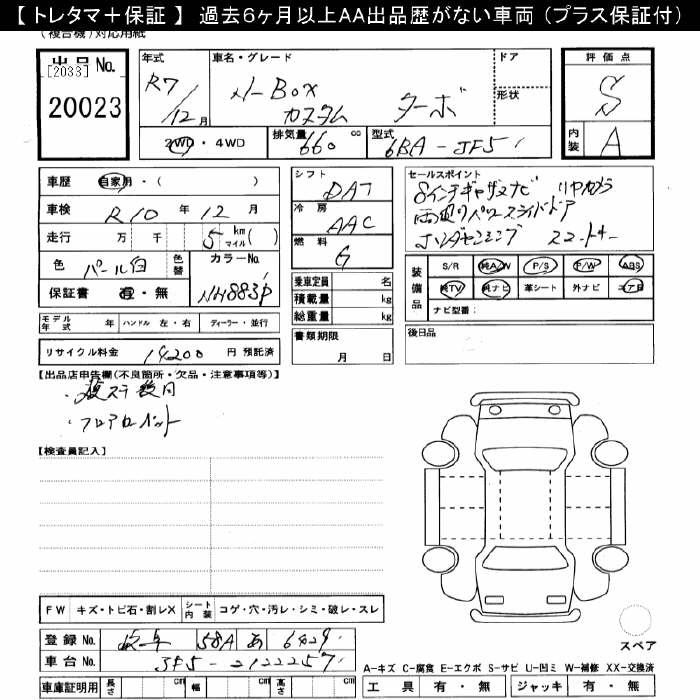 【 トレタマ＋保証 】 過去6ヶ月以上AA出品歴がない車両 (プラス保証付)
(複合機)対応用紙
出品No. [2033]
20023
年式 R7/12月
車名・グレード N-Box カスタム ターボ
ドア
形状
評価点 S
内装 A
2WD・4WD
排気量 660 cc
型式 6BA-JF5
車歴 自家用・( )
車検 R10年 12月
走行 万 千 5 km マイル( )
色 パール白
色替
カラーNo. NH883P
保証書 有・無
シフト DAT
冷房 AAC
燃料 G
乗車定員 名
積載量 kg
総重量 kg
セールスポイント
8インチギャザズナビ リヤカメラ
両側パワースライドドア
ホンダセンシング スマートキー
装備品
S/R 純A/W P/S P/W ABS
純TV 純ナビ 革シート 外ナビ エアB
ナビ型番:
モデル年式 年 ハンドル 左・右 ディーラー・並行
リサイクル料金 14200 円 預託済
書類期限 月 日
後日品
【出品店申告欄(不良箇所・欠品・注意事項等)】
・フロアカーペット
【検査員記入】
FW キズ・トビ石・割レX
シート内装 コゲ・穴・汚レ・シミ・破レ・スレ
登録No. 岐阜 581 あ 6429
車台No. JF5-2122257
スペア
A-キズ C-腐食 E-エクボ S-サビ U-凹ミ W-補修 XX-交換済
車庫証明用 長さ cm 幅 cm 高さ cm
工具 有・無 ジャッキ 有・無